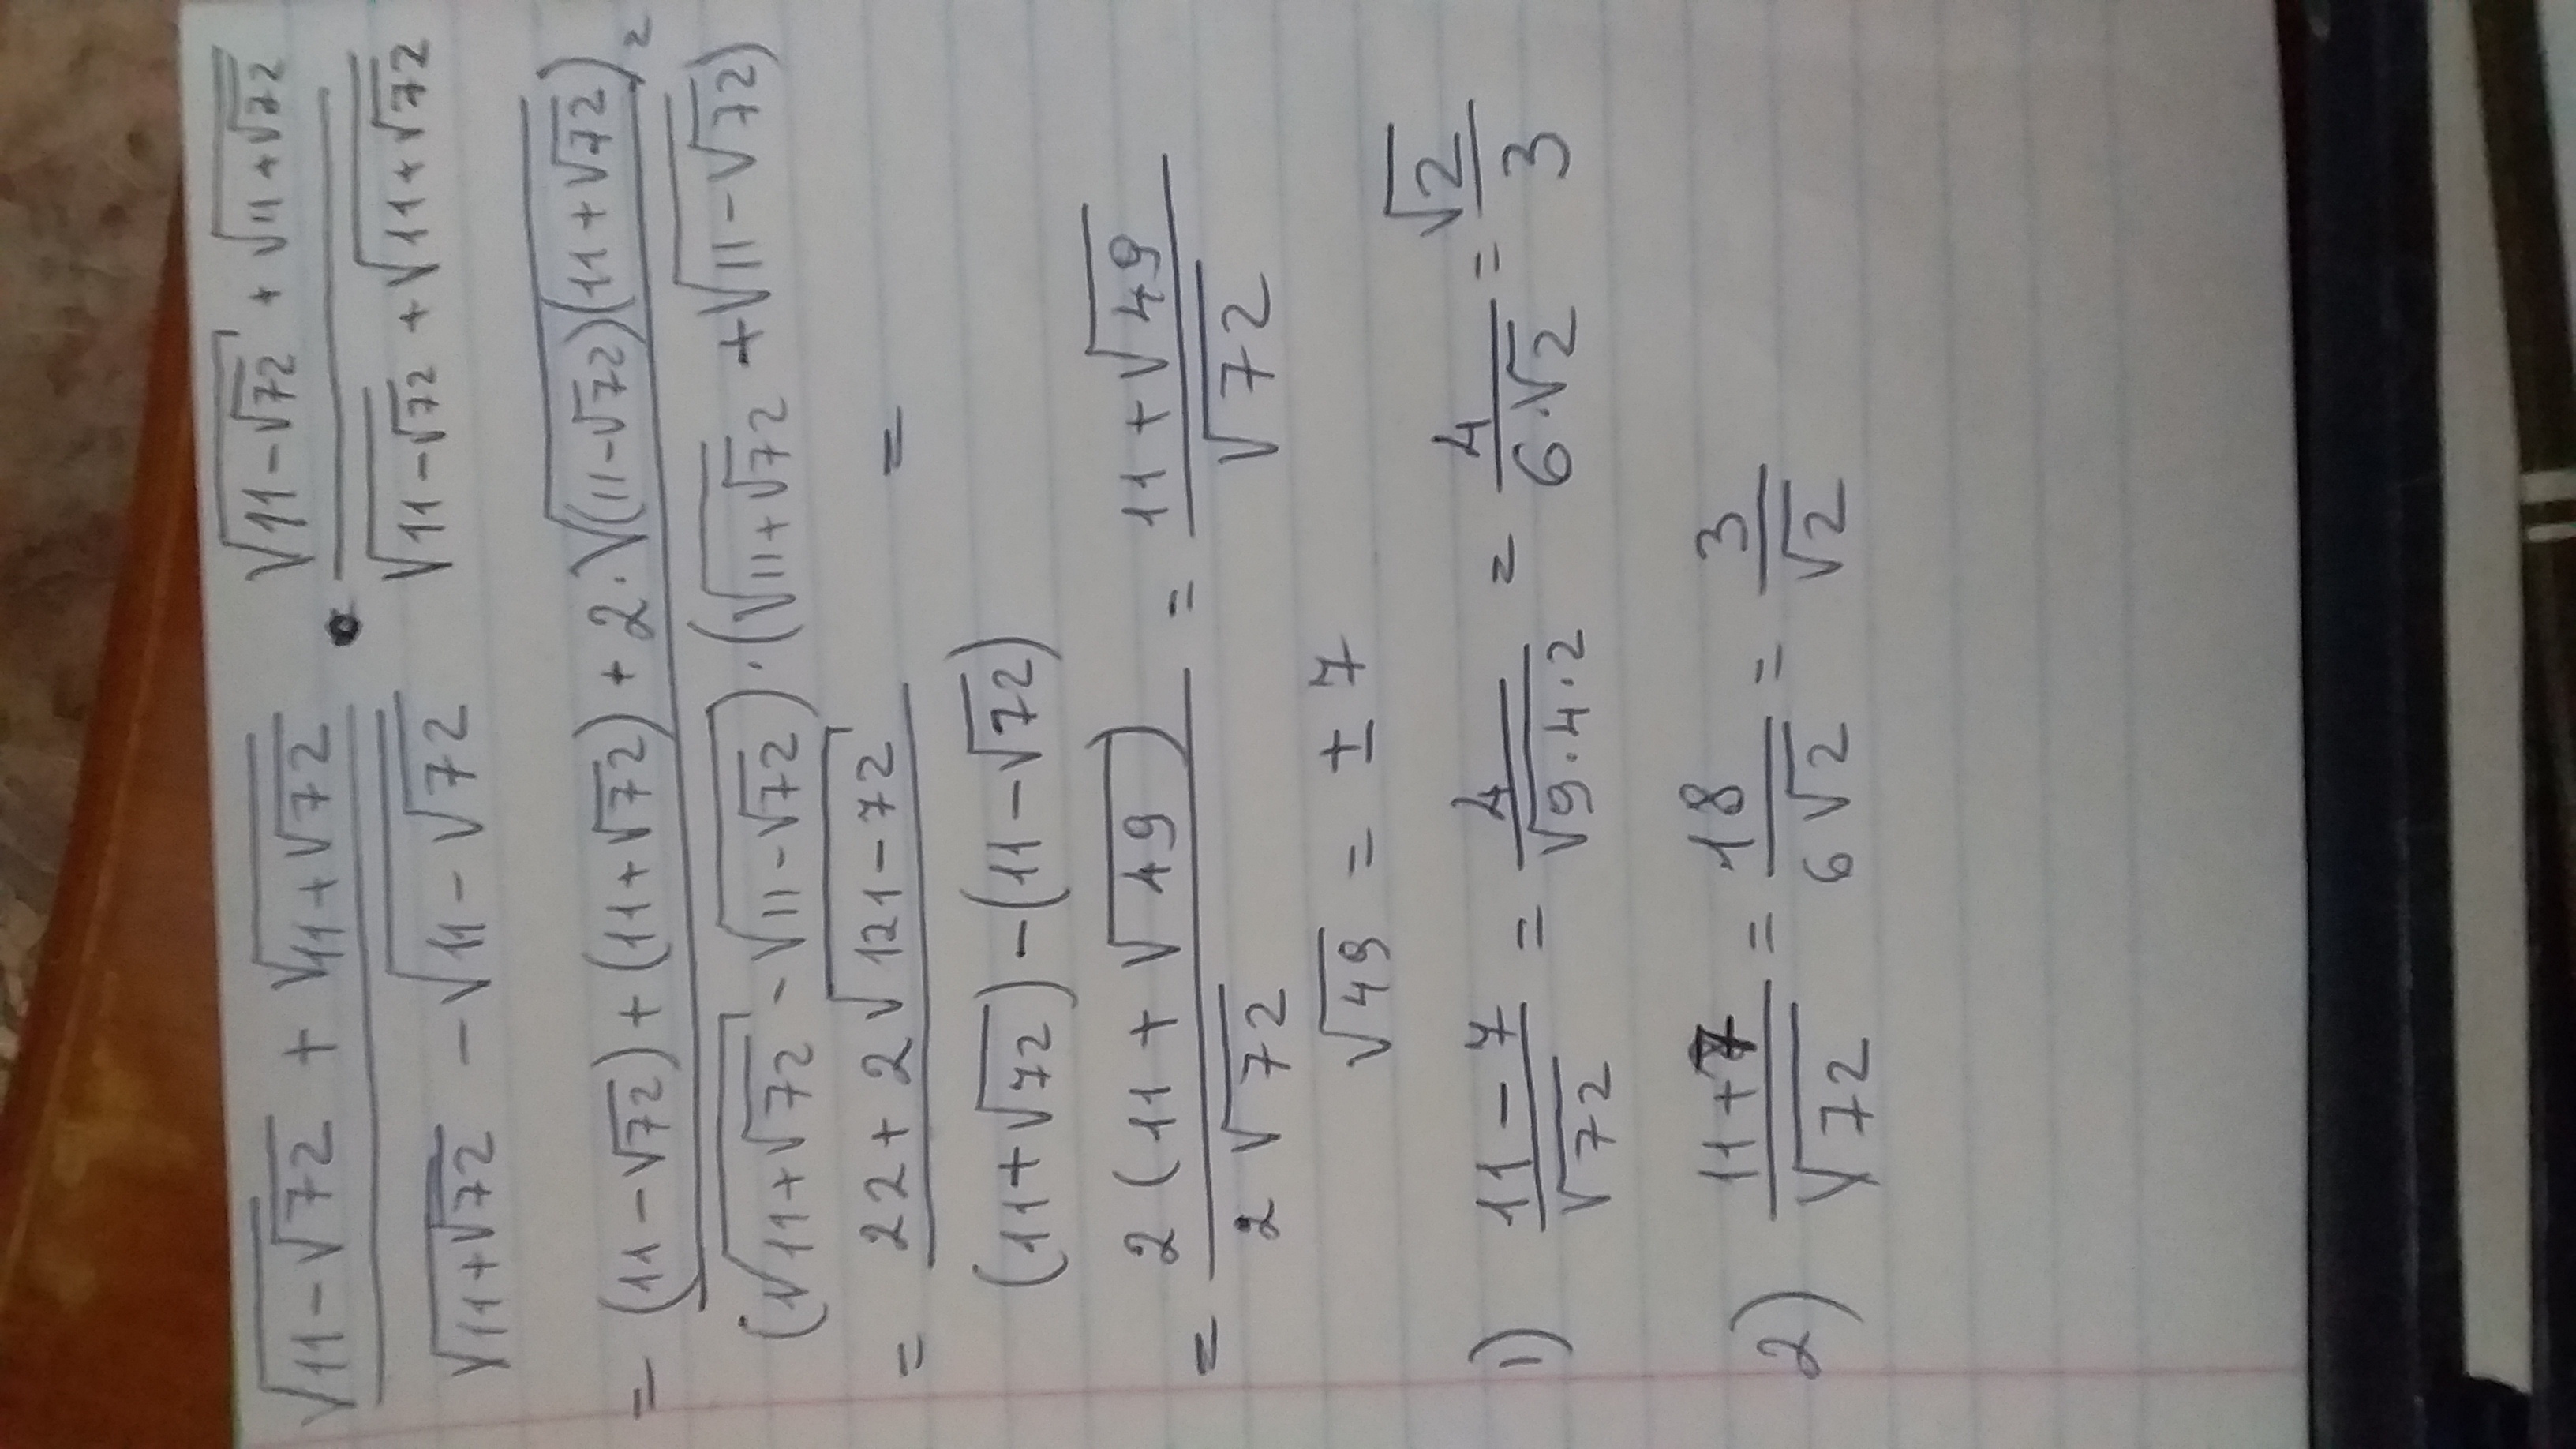 (√(11-√72) + √(11+√72)) / (√(11+√72) - √(11-√72)) • (√(11-√72) + √(11+√72)) / (√(11-√72) + √(11+√72))
= ((11-√72) + (11+√72) + 2·√((11-√72)(11+√72)))² / ((√(11+√72) - √(11-√72))·(√(11+√72) + √(11-√72)))
= (22 + 2√(121-72)) / ((11+√72) - (11-√72)) =
= 2(11 + √49) / 2√72 = (11+√49) / √72
√49 = ± 7
1) (11-7)/√72 = 4/√(9·4·2) = 4/(6·√2) = √2/3
2) (11+7)/√72 = 18/(6√2) = 3/√2